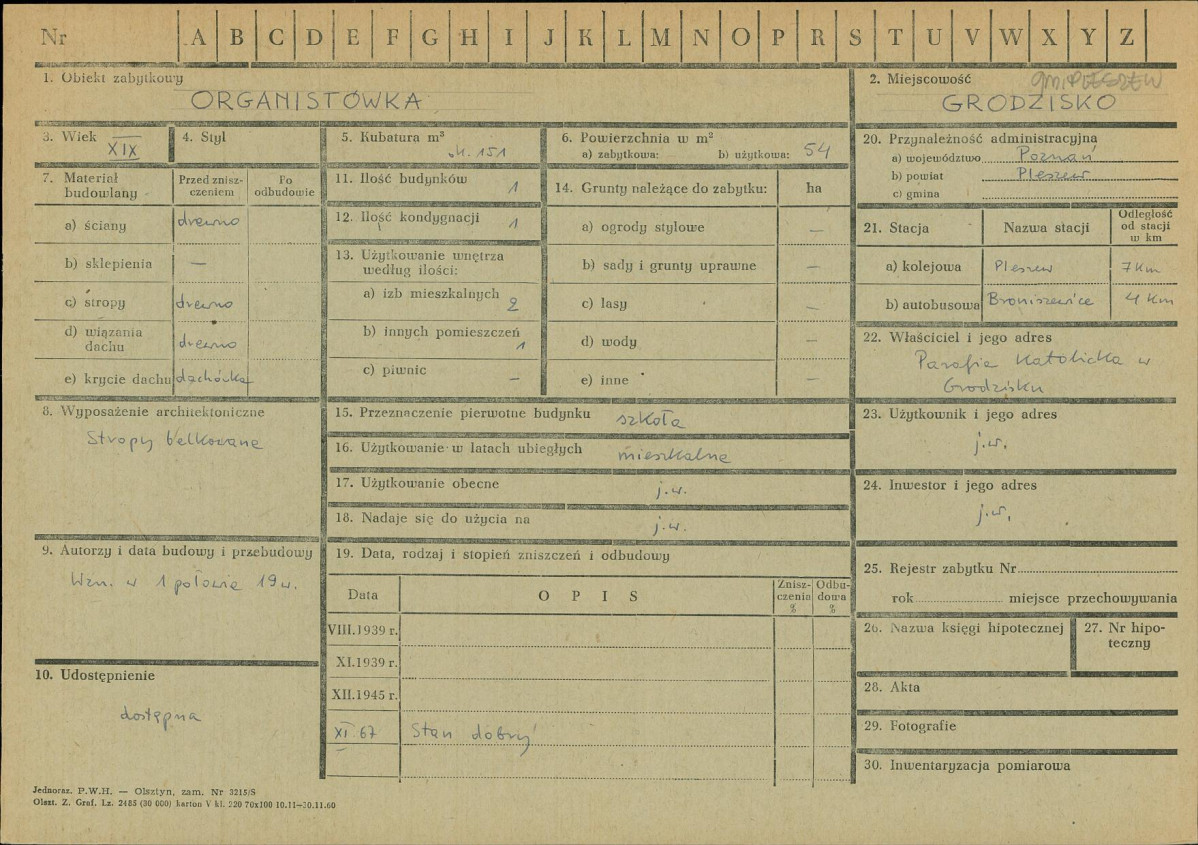 Nr A B C D E F G H I J K L M N O P R S T U V W X Y Z
1. Obiekt zabytkowy
ORGANISTÓWKA
2. Miejscowość
gm. PLESZEW
GRODZISKO
3. Wiek
XIX
4. Styl
5. Kubatura m³
ok. 151
6. Powierzchnia w m²
a) zabytkowa: b) użytkowa: 54
7. Materiał budowlany
Przed zniszczeniem
Po odbudowie
a) ściany drewno
b) sklepienia —
c) stropy drewno
d) wiązania dachu drewno
e) krycie dachu dachówka
8. Wyposażenie architektoniczne
Stropy belkowane
9. Autorzy i data budowy i przebudowy
Wzn. w 1 połowie 19 w.
10. Udostępnienie
dostępna
11. Ilość budynków 1
12. Ilość kondygnacji 1
13. Użytkowanie wnętrza według ilości:
a) izb mieszkalnych 2
b) innych pomieszczeń 1
c) piwnic —
14. Grunty należące do zabytku: ha
a) ogrody stylowe —
b) sady i grunty uprawne —
c) lasy —
d) wody —
e) inne —
15. Przeznaczenie pierwotne budynku szkoła
16. Użytkowanie w latach ubiegłych mieszkalne
17. Użytkowanie obecne j.w.
18. Nadaje się do użycia na j.w.
19. Data, rodzaj i stopień zniszczeń i odbudowy
Data OPIS Zniszczenia % Odbudowa %
VIII.1939 r.
XI.1939 r.
XII.1945 r.
XI 67 Stan dobry
20. Przynależność administracyjna
a) województwo Poznań
b) powiat Pleszew
c) gmina
21. Stacja Nazwa stacji Odległość od stacji w km
a) kolejowa Pleszew 7 km
b) autobusowa Broniszewice 4 km
22. Właściciel i jego adres
Parafia Katolicka w
Grodzisku
23. Użytkownik i jego adres
j.w.
24. Inwestor i jego adres
j.w.
25. Rejestr zabytku Nr
rok miejsce przechowywania
26. Nazwa księgi hipotecznej
27. Nr hipoteczny
28. Akta
29. Fotografie
30. Inwentaryzacja pomiarowa
Jednoraz. P.W.H. — Olsztyn, zam. Nr 3215/S
Olszt. Z. Graf. Lz. 2485 (30 000) karton V kl. 220 70x100 10.11—30.11.60